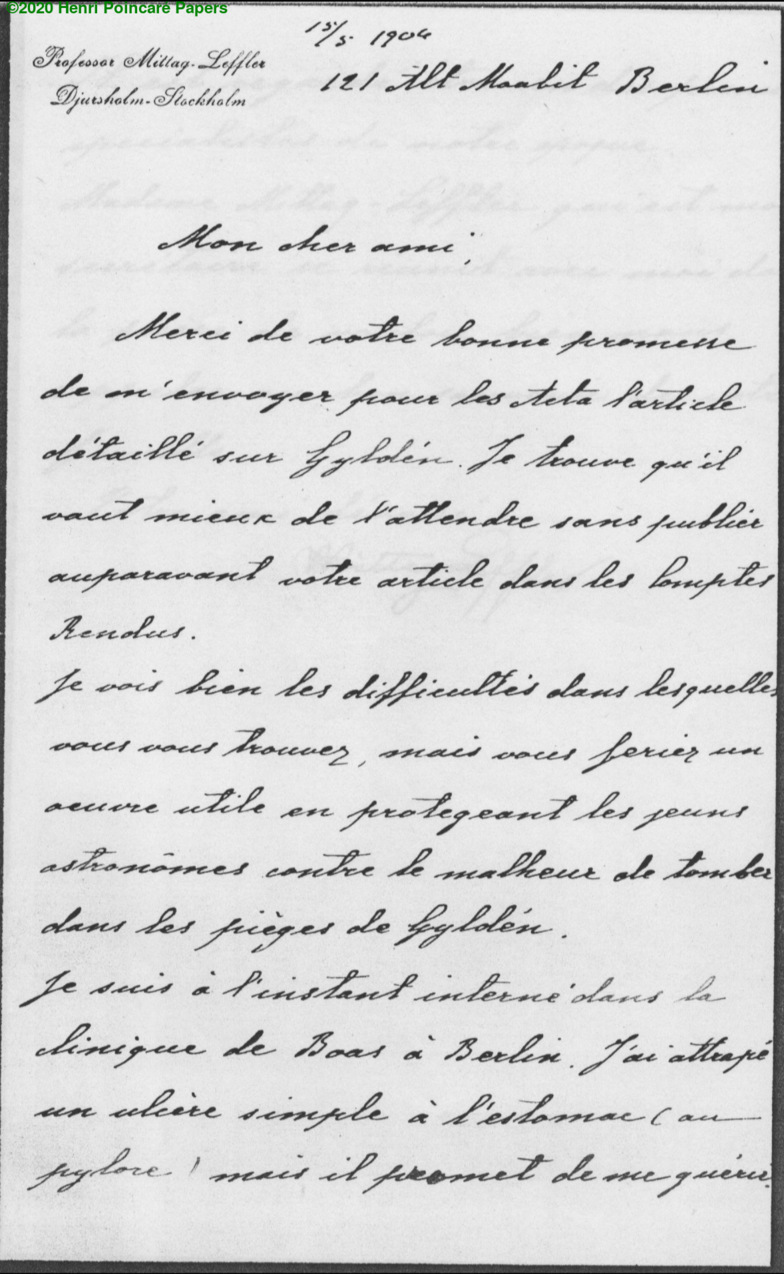 ©2020 Henri Poincaré Papers
15/5 1904
Professor Mittag-Leffler
Djursholm-Stockholm
121 Alt Moabit Berlin
Mon cher ami,
Merci de votre bonne promesse
de m'envoyer pour les Acta l'article
détaillé sur Gyldén. Je trouve qu'il
vaut mieux de l'attendre sans publier
auparavant votre article dans les Comptes
Rendus.
Je vois bien les difficultés dans lesquelles
vous vous trouvez, mais vous feriez un
oeuvre utile en protegeant les jeuns
astronômes contre le malheur de tomber
dans les pièges de Gyldén.
Je suis à l'instant interné dans la
clinique de Boas à Berlin. J'ai attrapé
un ulcère simple à l'estomac (au
pylore) mais il promet de me guérir.